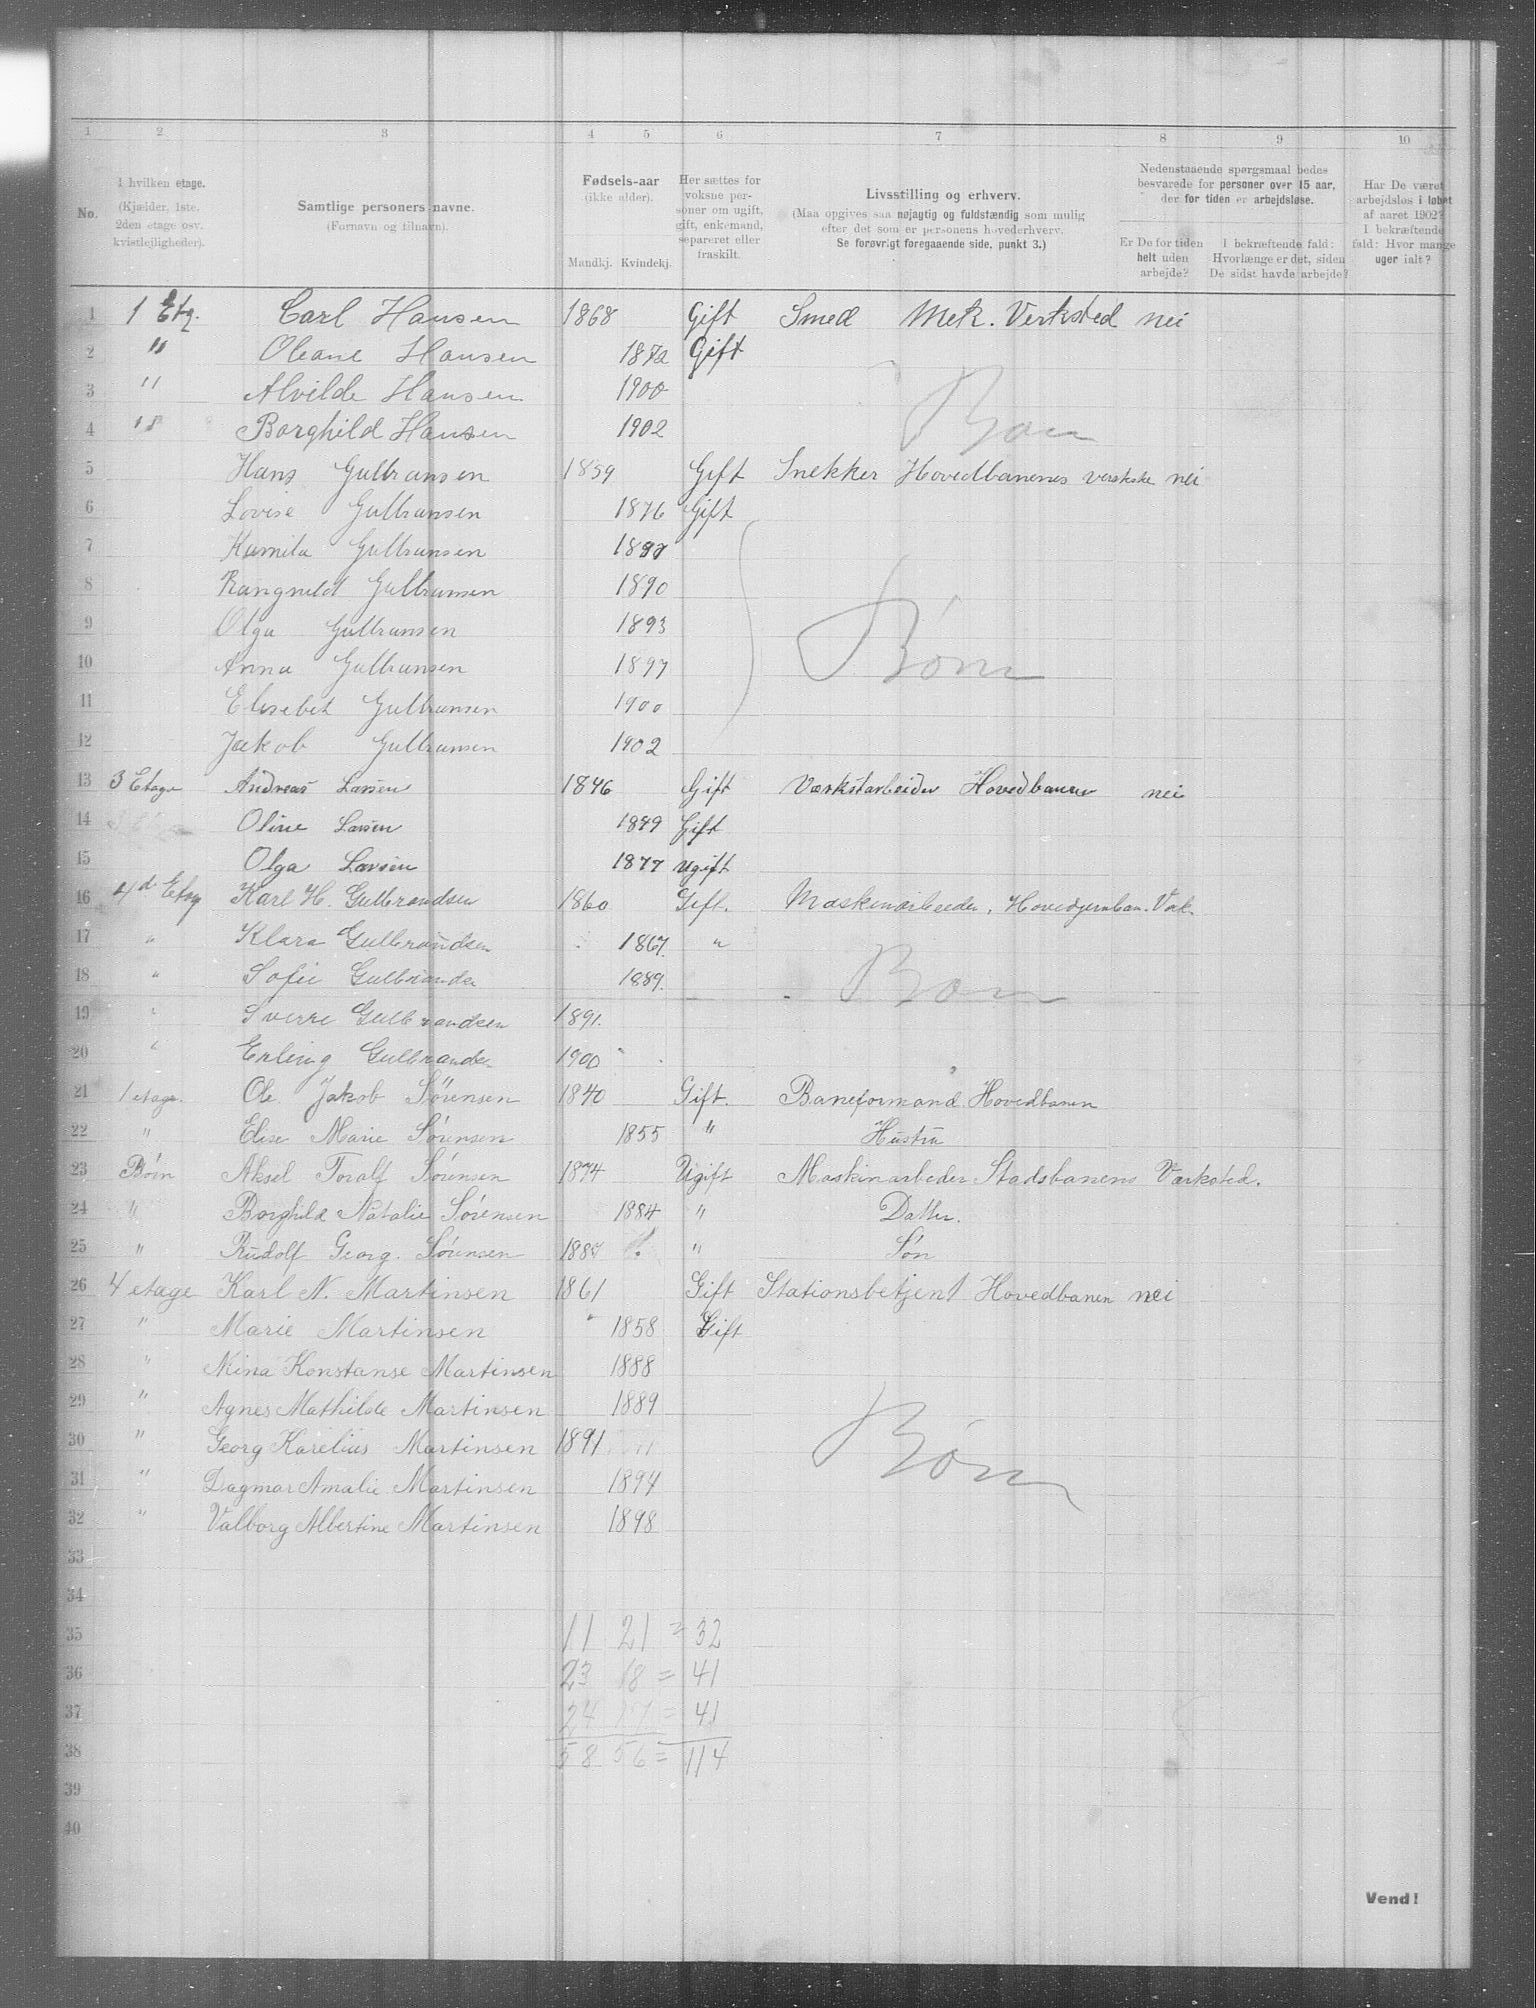 1 2 3 4 5 6 7 8 9 10
No.
I hvilken etage.
(Kjælder, 1ste.
2den etage osv.
kvistlejligheder).
Samtlige personers navne.
(Fornavn og tilnavn).
Fødsels-aar
(ikke alder).
Mandkj. Kvindekj.
Her sættes for
voksne per-
soner om ugift,
gift, enkemand,
separeret eller
fraskilt.
Livsstilling og erhverv.
(Maa opgives saa nøjagtig og fuldstændig som mulig
efter det som er personens hovederhverv.
Se forøvrigt foregaaende side, punkt 3.)
Nedenstaaende spørgsmaal bedes
besvarede for personer over 15 aar,
der for tiden er arbejdsløse.
Er De for tiden
helt uden
arbejde?
I bekræftende fald:
Hvorlænge er det, siden
De sidst havde arbejde?
Har De været
arbejdsløs i løbet
af aaret 1902?
I bekræftende
fald: Hvor mange
uger ialt?
1 1 Etg. Carl Hansen 1868 Gift Smed Mek. Verksted nei
2 " Oleane Hansen 1872 Gift
3 " Alvilde Hansen 1900
4 " Borghild Hansen 1902 Børn
5 Hans Gulbransen 1859 Gift Snekker Hovedbanenes nei
6 Lovise Gulbransen 1876 Gift
7 Kamila Gulbransen
8 Gulbransen 1890
9 Olga Gulbransen 1893
10 Anna Gulbransen 1897 Børn
11 Elisebet Gulbransen 1900
12 Jakob Gulbransen 1902
13 3 Etage Andreas Larsen 1846 Gift Værkstarbeider Hovedbanen nei
14 Oline Larsen 1849 Gift
15 Olga Larsen 1877 Ugift
16 4d Etag Karl H. Gulbrandsen 1860 Gift. Maskinarbeider, Hovedjernban. Verk.
17 " Klara Gulbrandsen 1867. "
18 " Sofie Gulbrandsen 1889. Børn
19 " Sverre Gulbrandsen 1891.
20 " Erling Gulbrandsen 1900
21 1 etage. Ole Jakob Sørensen 1840 Gift. Baneformand Hovedbanen
22 " Elise Marie Sørensen 1855 " Hustru
23 Børn Aksel Toralf Sørensen 1874 Ugift Maskinarbeder Stadsbanens Værksted.
24 " Borghild Natalie Sørensen 1884 " Datter.
25 " Rudolf Georg. Sørensen 1887 " Søn
26 4 etage Karl N. Martinsen 1861 Gift Stationsbetjent Hovedbanen nei
27 " Marie Martinsen 1858 Gift
28 " Mina Konstanse Martinsen 1888
29 " Agnes Mathilde Martinsen 1889
30 " Georg Karelius Martinsen 1891 Børn
31 " Dagmar Amalie Martinsen 1894
32 " Valborg Albertine Martinsen 1898
33
34
35 11 21 = 32
36 23 18 = 41
37 24 17 = 41
38 58 56 = 114
39
40
Vend!